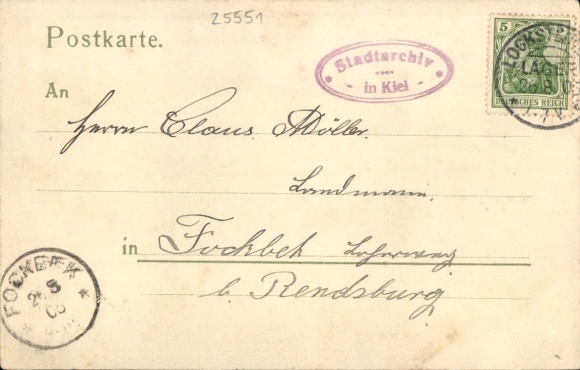 25551
Postkarte.
Stadtarchiv
in Kiel
5
DEUTSCHES REICH
LOCKSTEDT
LAG
An
Herrn Claus Möller.
Landmann.
in Fockbek
b. Rendsburg
FOCKBEK